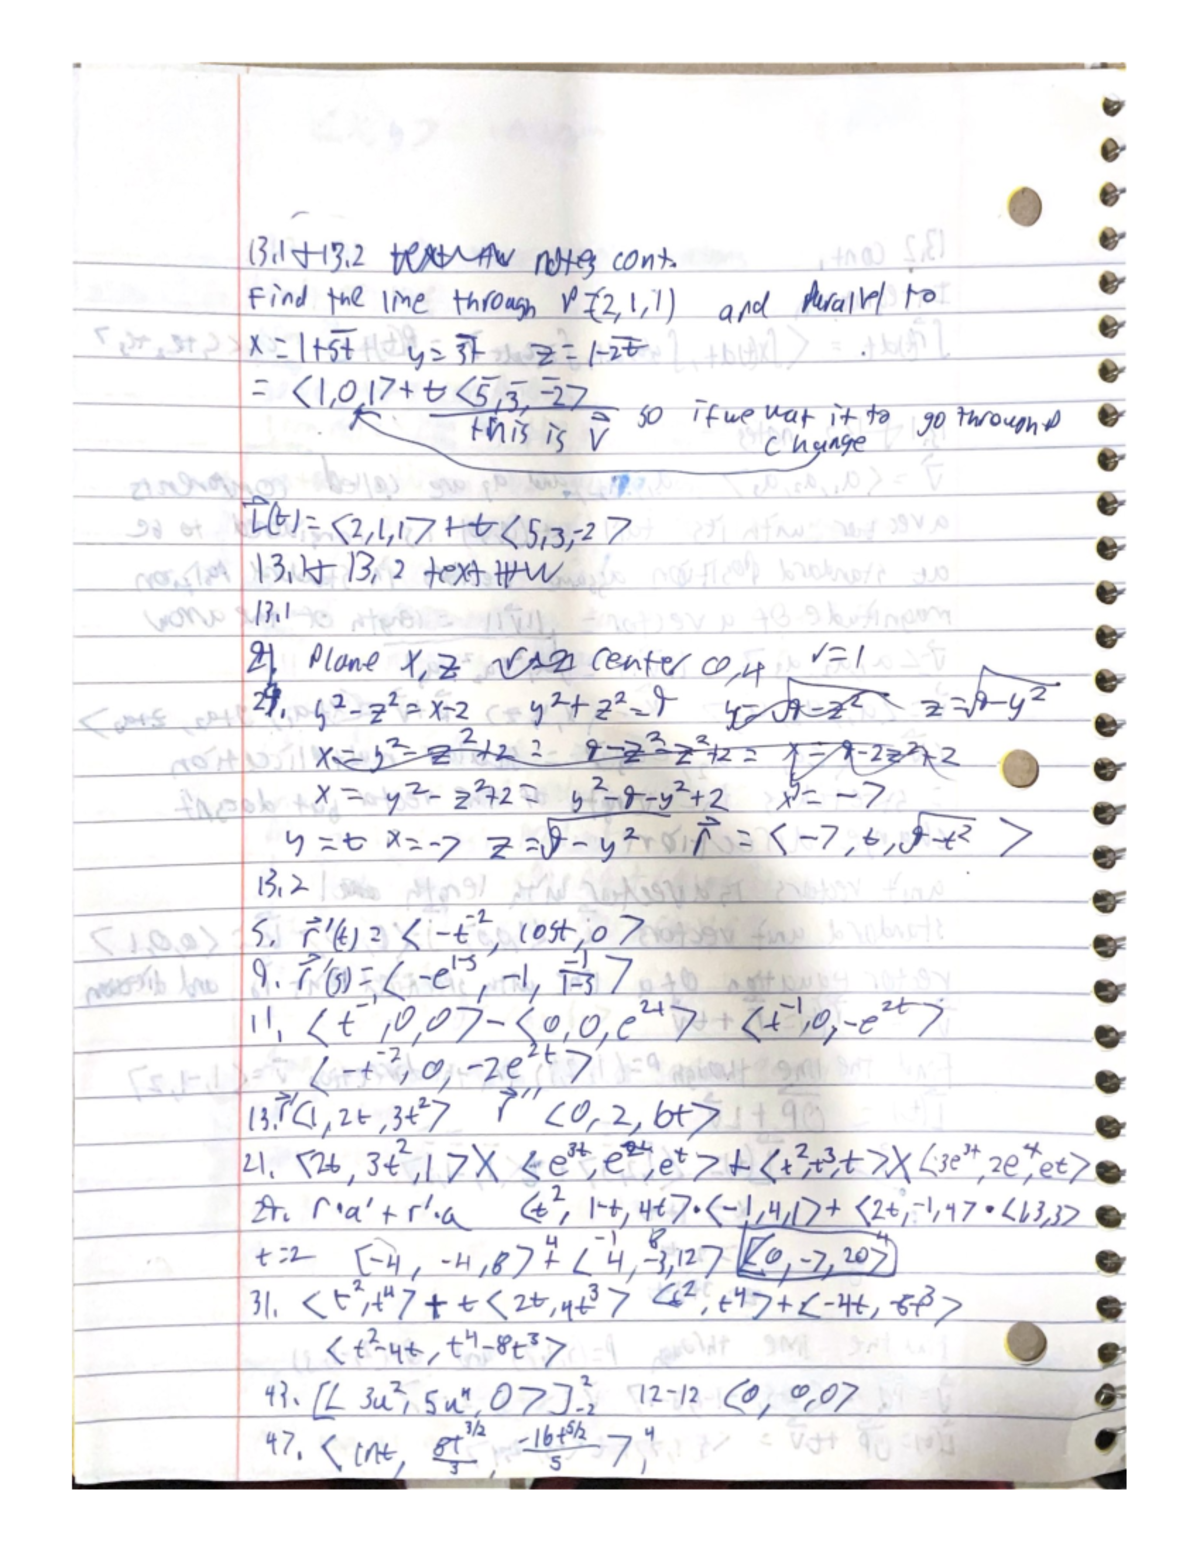 13.1+13.2 text HW notes cont.
Find the line through P=(2,1,1) and Parallel to
x = 1+5t y = 3t z = 1-2t
= <1,0,1> + t <5,3,-2>
this is v⃗ so if we want it to go through P
change
L⃗(t) = <2,1,1> + t<5,3,-2>
13.1+ 13.2 text HW
13.1
21. Plane x,z center 0,4 r=1
29. y²-z²=x-2 y²+z²=9 y=√9-z² z=√9-y²
x = y²-z²+2 = 9-z²-z²+2 = x = 9-2z²+2
x = y²-z²+2 = y²-9-y²+2 x = -7
y = t x = -7 z = √9-y² r⃗ = <-7, t, √9-t²>
13.2
5. r⃗'(t) = <-t⁻², cost, 0>
9. r⃗'(s) = <-e¹⁻ˢ, -1, -1/1-s>
11. <t⁻¹,0,0> - <0,0,e²ᵗ> <t⁻¹,0,-e²ᵗ>
<-t⁻², 0, -2e²ᵗ>
13. r⃗'<1, 2t, 3t²> r⃗'' <0, 2, 6t>
21. <2t, 3t²,1> X <e³ᵗ, e²ᵗ, eᵗ> + <t²,t³,t> X <3e³ᵗ, 2e²ᵗ, eᵗ>
r·a' + r'·a <t², 1-t, 4t>·<-1,4,1> + <2t,-1,4>·<1,3,3>
t=2 [-4, -4, 8> + <4, -3, 12> <0, -7, 20>
31. <t²,t⁴> + t<2t,4t³> <t²,t⁴> + <-4t, -8t³>
<t²-4t, t⁴-8t³>
43. [< 3u², 5u⁴, 0>]²₋₂ 12-12 <0, 0,0>
47. <lnt, 8t³ᐟ²/3, -16t⁵ᐟ²/5>,⁴